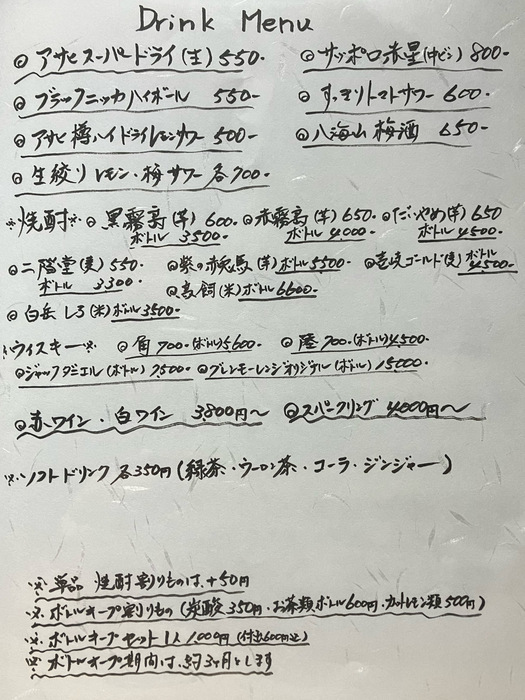 Drink Menu
◎ アサヒスーパードライ(生) 550- ◎ サッポロ赤星(中ビン) 800-
◎ ブラックニッカハイボール 550- ◎ すっきりトマトサワー 600-
◎ アサヒ樽ハイドライレモンサワー 500- ◎ 八海山梅酒 650-
◎ 生絞りレモン・梅サワー 各700-
※焼酎※ ◎ 黒霧島(芋) 600- ◎ 赤霧島(芋) 650- ◎ だいやめ(芋) 650
ボトル 3500- ボトル 4,000- ボトル 4500-
◎ 二階堂(麦) 550- ◎ 紫の赤兎馬(芋)ボトル5500- ◎ 壱岐ゴールド(麦)ボトル4500-
ボトル 3300- ◎ 鳥飼(米)ボトル6600-
◎ 白岳しろ(米)ボトル3500-
ウィスキー※ ◎ 角 700-(ボトル)5600- ◎ 陸 700-(ボトル)4,500-
◎ジャックダニエル(ボトル) 7500- ◎グレンモーレンジオリジナル(ボトル) 15,000-
◎赤ワイン・白ワイン 3,800円〜 ◎スパークリング 4,000円〜
※ソフトドリンク 各350円(緑茶・ウーロン茶・コーラ・ジンジャー)
※ 単品 焼酎割りものは、+50円
※ ボトルキープ割りもの(炭酸350円・お茶類ボトル600円・カットレモン類500円)
※ ボトルキープセット 1人 1,000円
※ ボトルキープ期間は、約3ヶ月とします